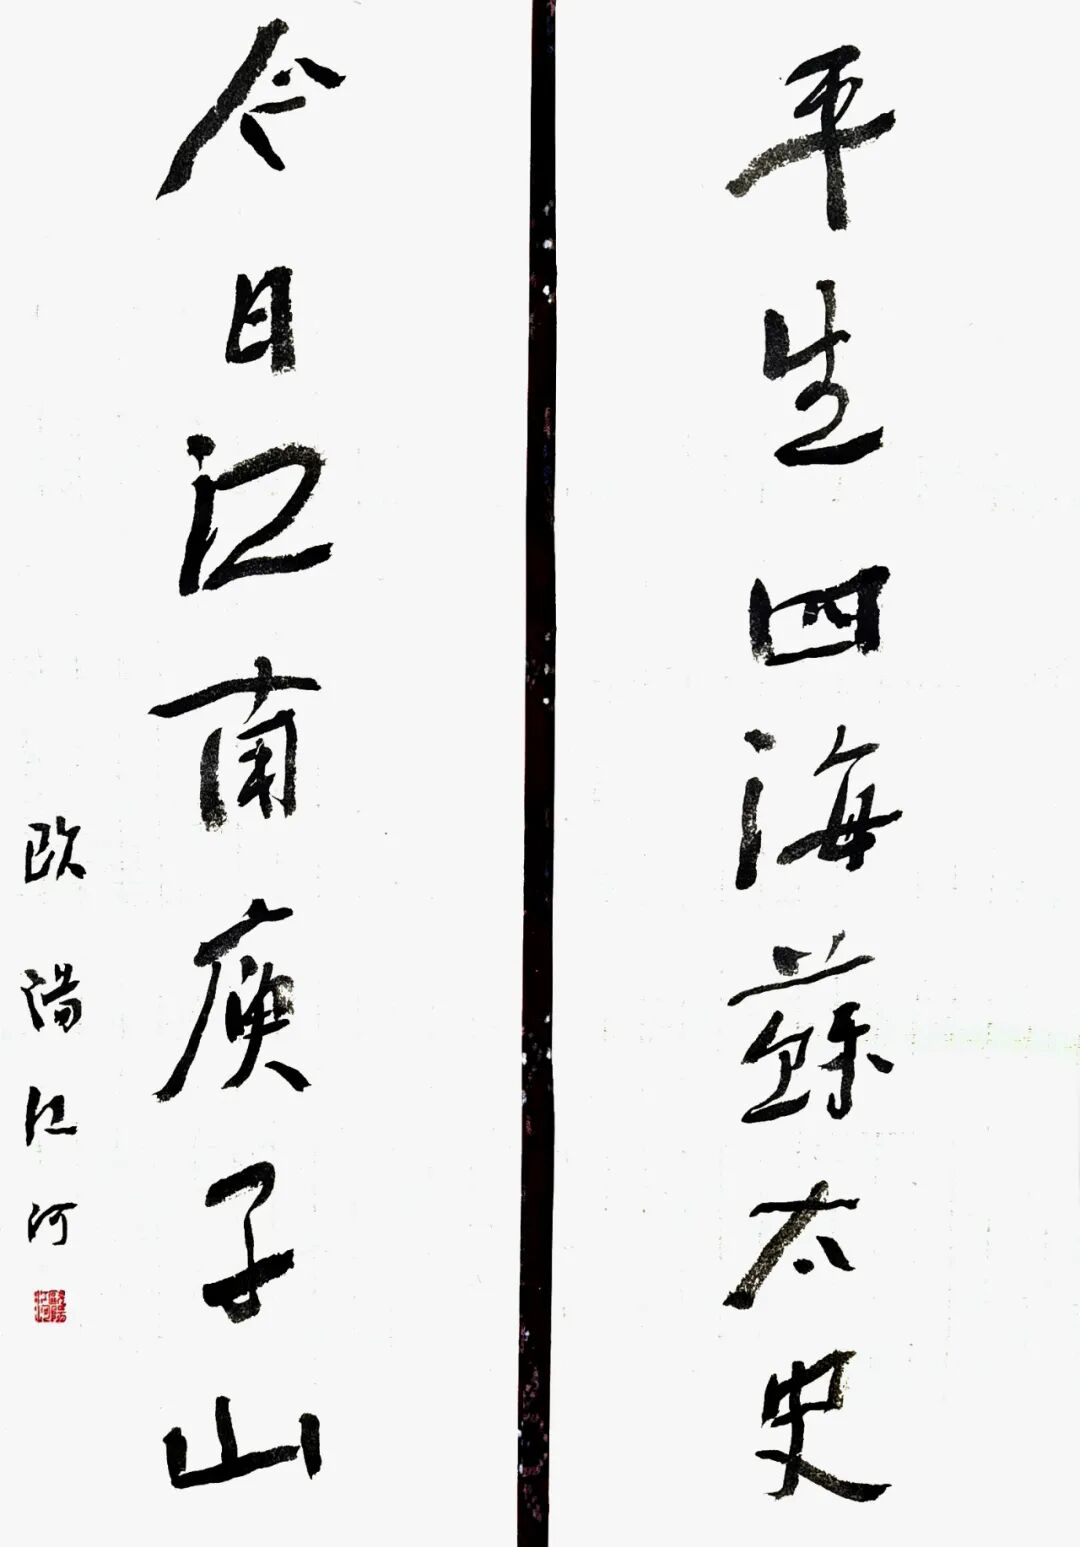 平生四海蘇太史
今日江南庾子山
歐陽江河
歐陽江河